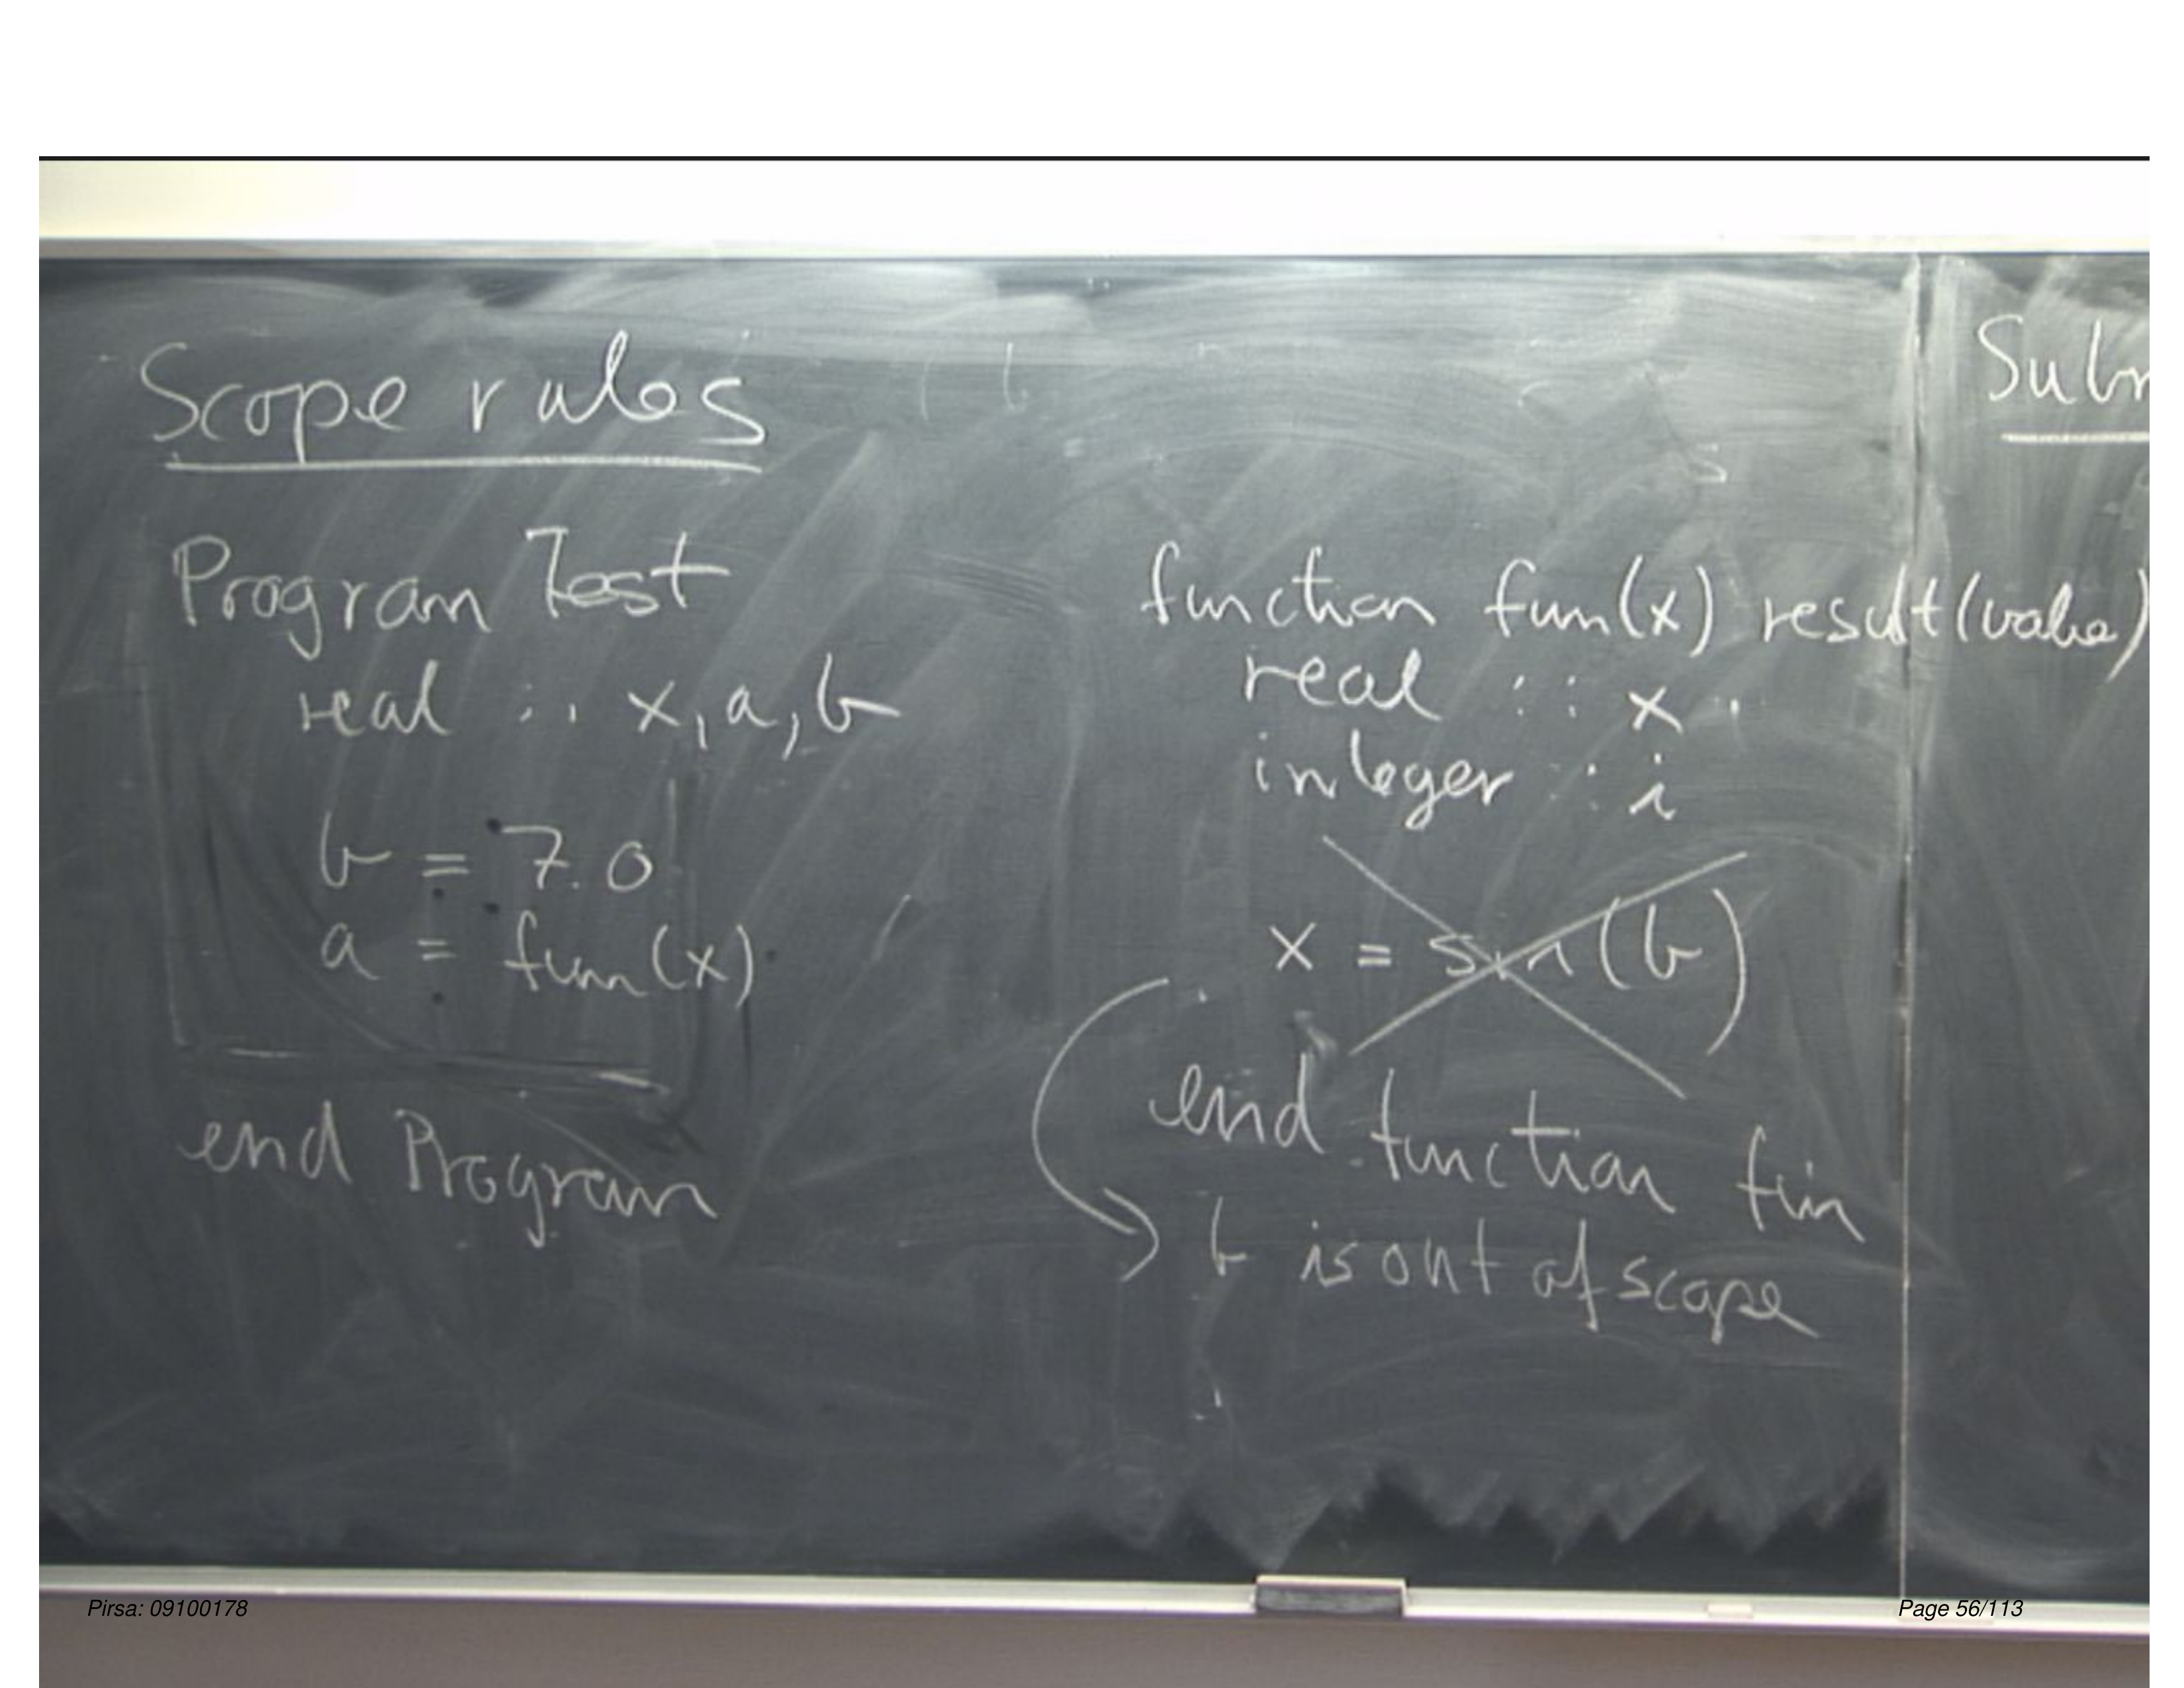 Scope rules
Program Test
real :: x, a, b
b = 7.0
a = fun(x)
end Program
function fun(x) result(value)
real :: x
integer :: i
x = sin(b)
end function fun
b is out of scope
Pirsa: 09100178
Page 56/113